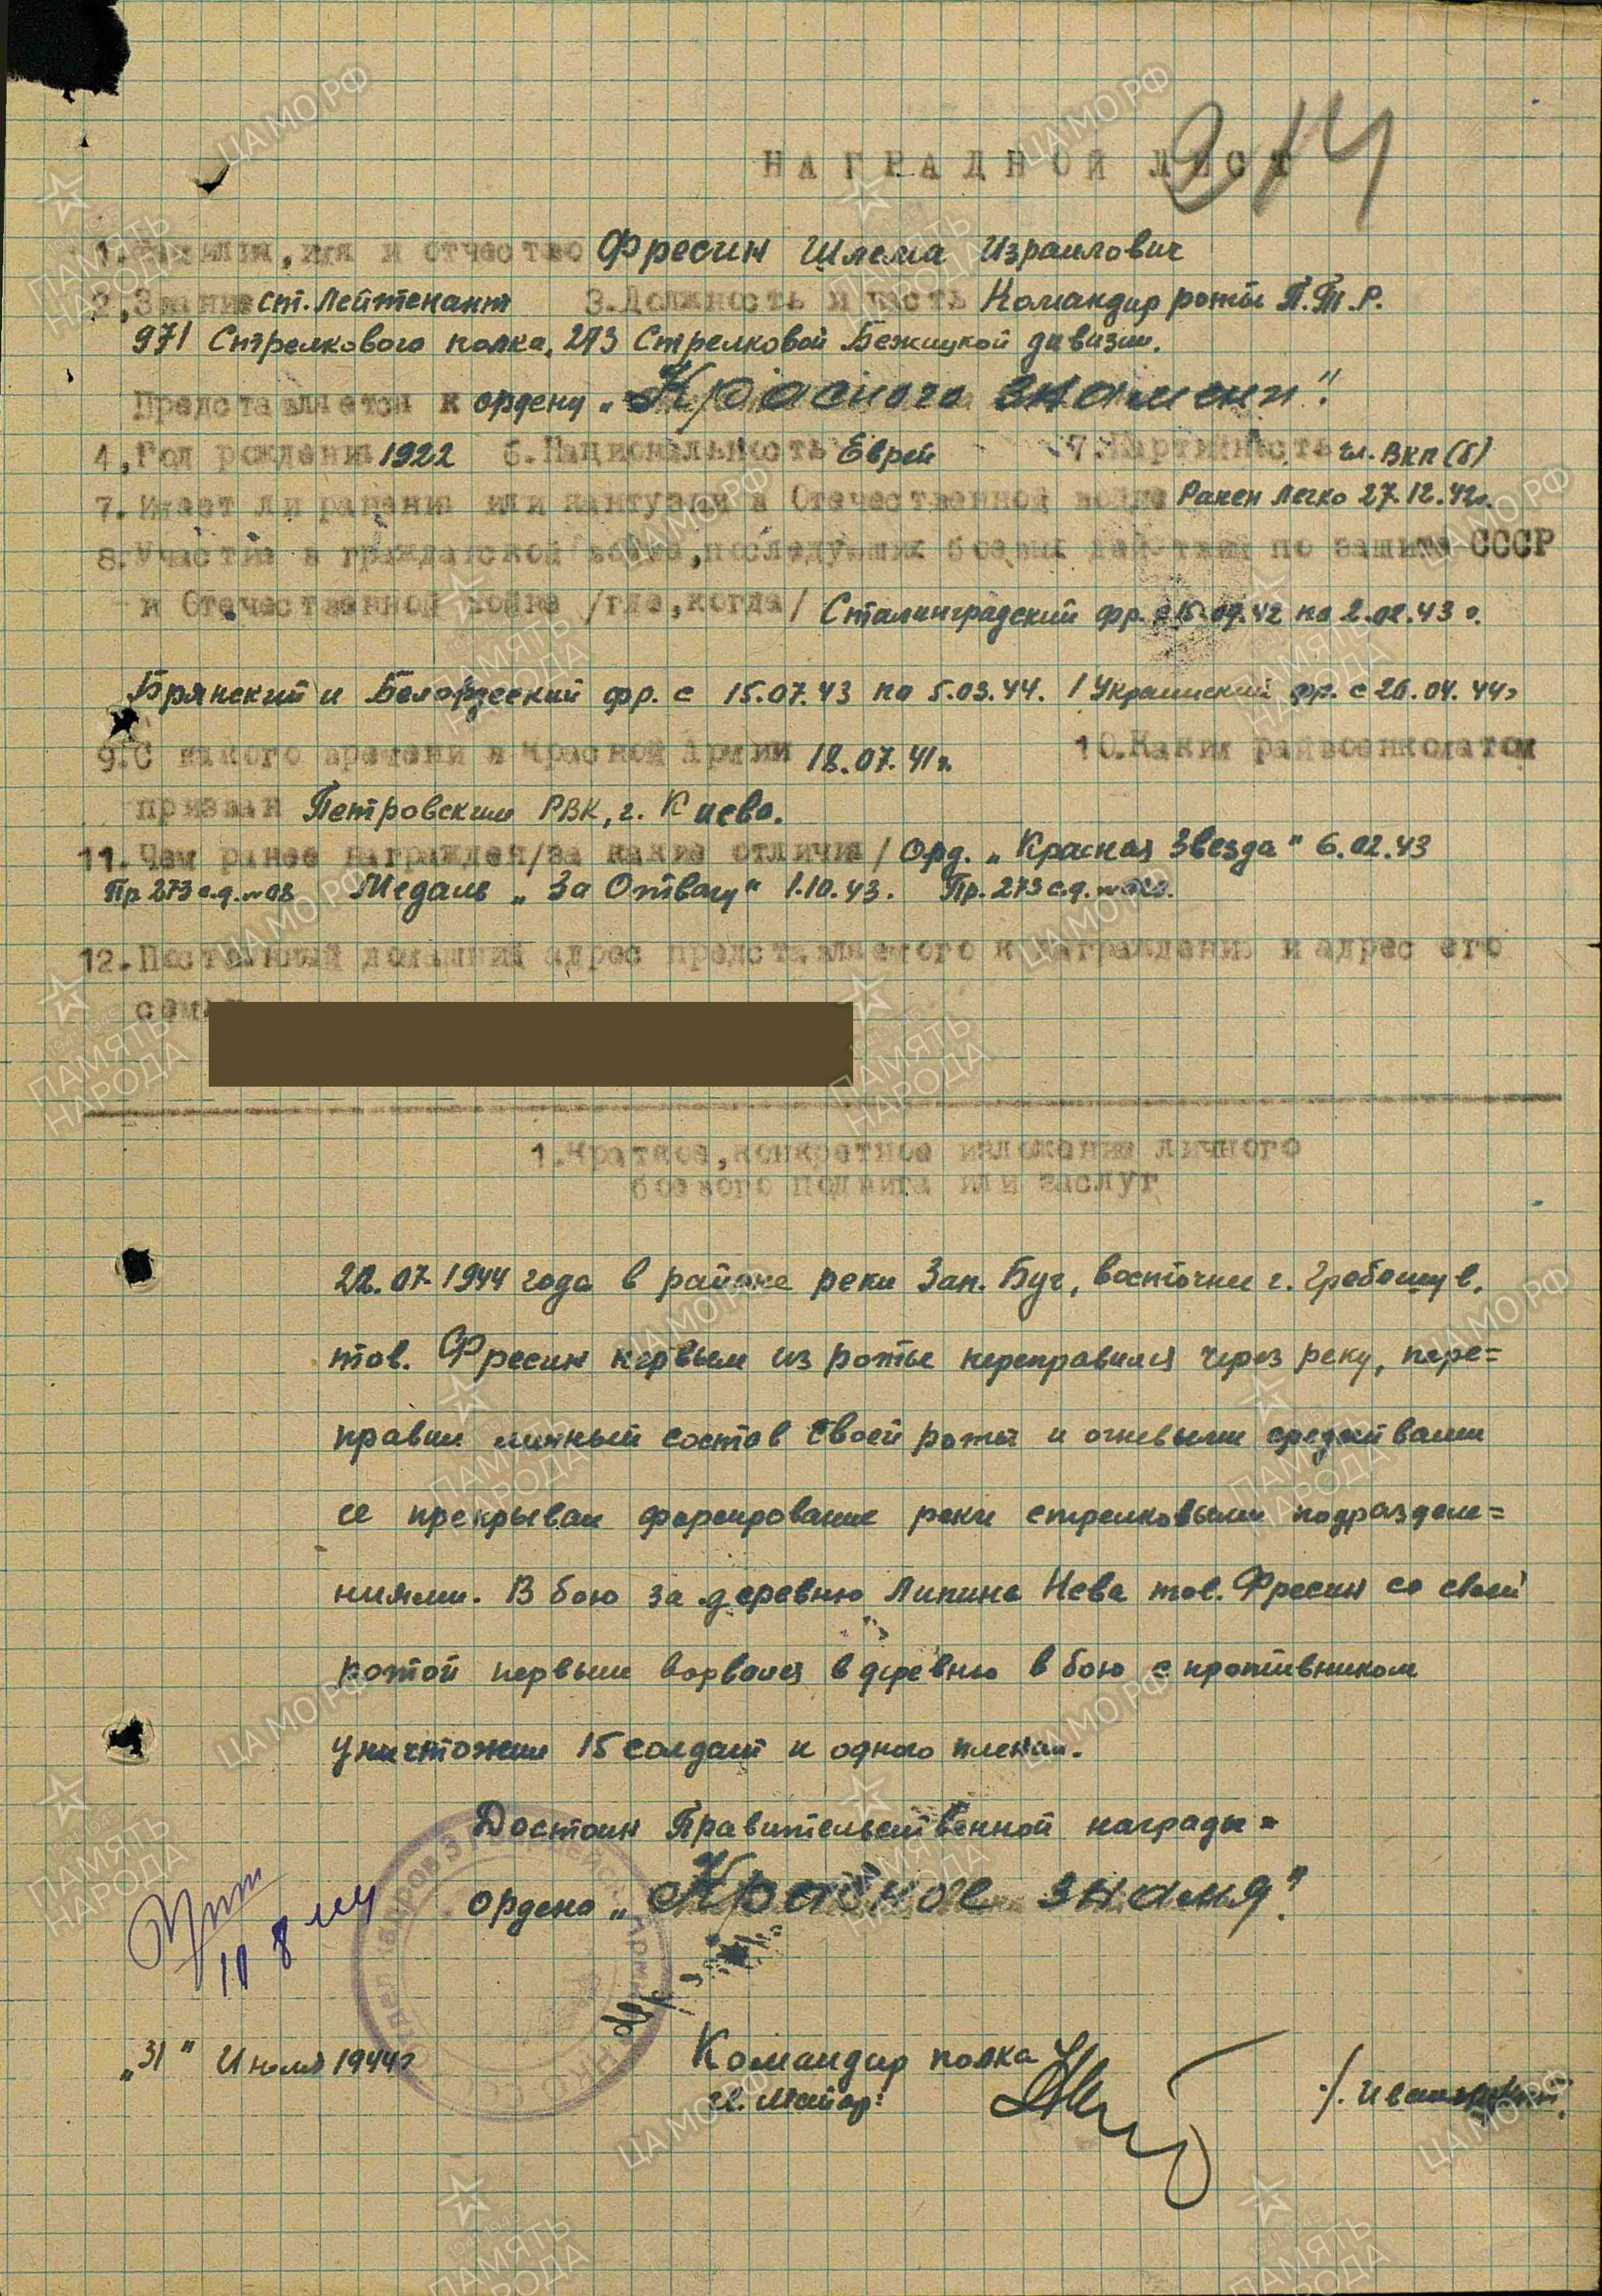 214
НАГРАДНОЙ ЛИСТ
1. Фамилия, имя и отчество Фресин Шлема Израилович
2, Звание ст. Лейтенант 3. Должность и часть Командир роты П.Т.Р.
971 Стрелкового полка, 273 Стрелковой Бежицкой дивизии.
Представляется к ордену „Красного знамени".
4, Год рождения 1922 6. Национальность Еврей 7. Партийность чл. ВКП(б)
7. Имеет ли ранения или контузии в Отечественной войне Ранен легко 27.12.42г.
8. Участие в гражданской войне, последующих боевых действиях по защите СССР
и Отечественной войне /где, когда/ Сталинградский фр. с 15.09.42 по 2.02.43 г.
Брянский и Белорусский фр. с 15.07.43 по 5.03.44. 1 Украинский фр. с 26.04.44г
9. С какого времени в Красной Армии 18.07.41г. 10. Каким райвоенкоматом
призван Петровским РВК, г. Киева.
11. Чем ранее награжден /за какие отличия/ Орд. „Красная Звезда" 6.02.43
Пр 273 с.д. №03 Медаль „За Отвагу" 1.10.43. Пр. 273 с.д.
12. Постоянный домашний адрес представляемого к награждению и адрес его
семьи
1. Краткое, конкретное изложение личного
боевого подвига или заслуг
22.07.1944 года в районе реки Зап. Буг, восточнее г. Гребошув,
тов. Фресин первым из роты переправился через реку, пере=
правил личный состав своей роты и огневыми средствами
ее прекрывал форсирование реки стрелковыми подразделе=
ниями. В бою за деревню Липина Нева тов. Фресин со своей
ротой первым ворвался в деревню в бою с противником
уничтожил 15 солдат и одного пленил.
Достоин Правительственной награды=
ордена „Красное знамя".
„31" Июля 1944г
Командир полка
Майор:
ЦАМО РФ
ПАМЯТЬ НАРОДА